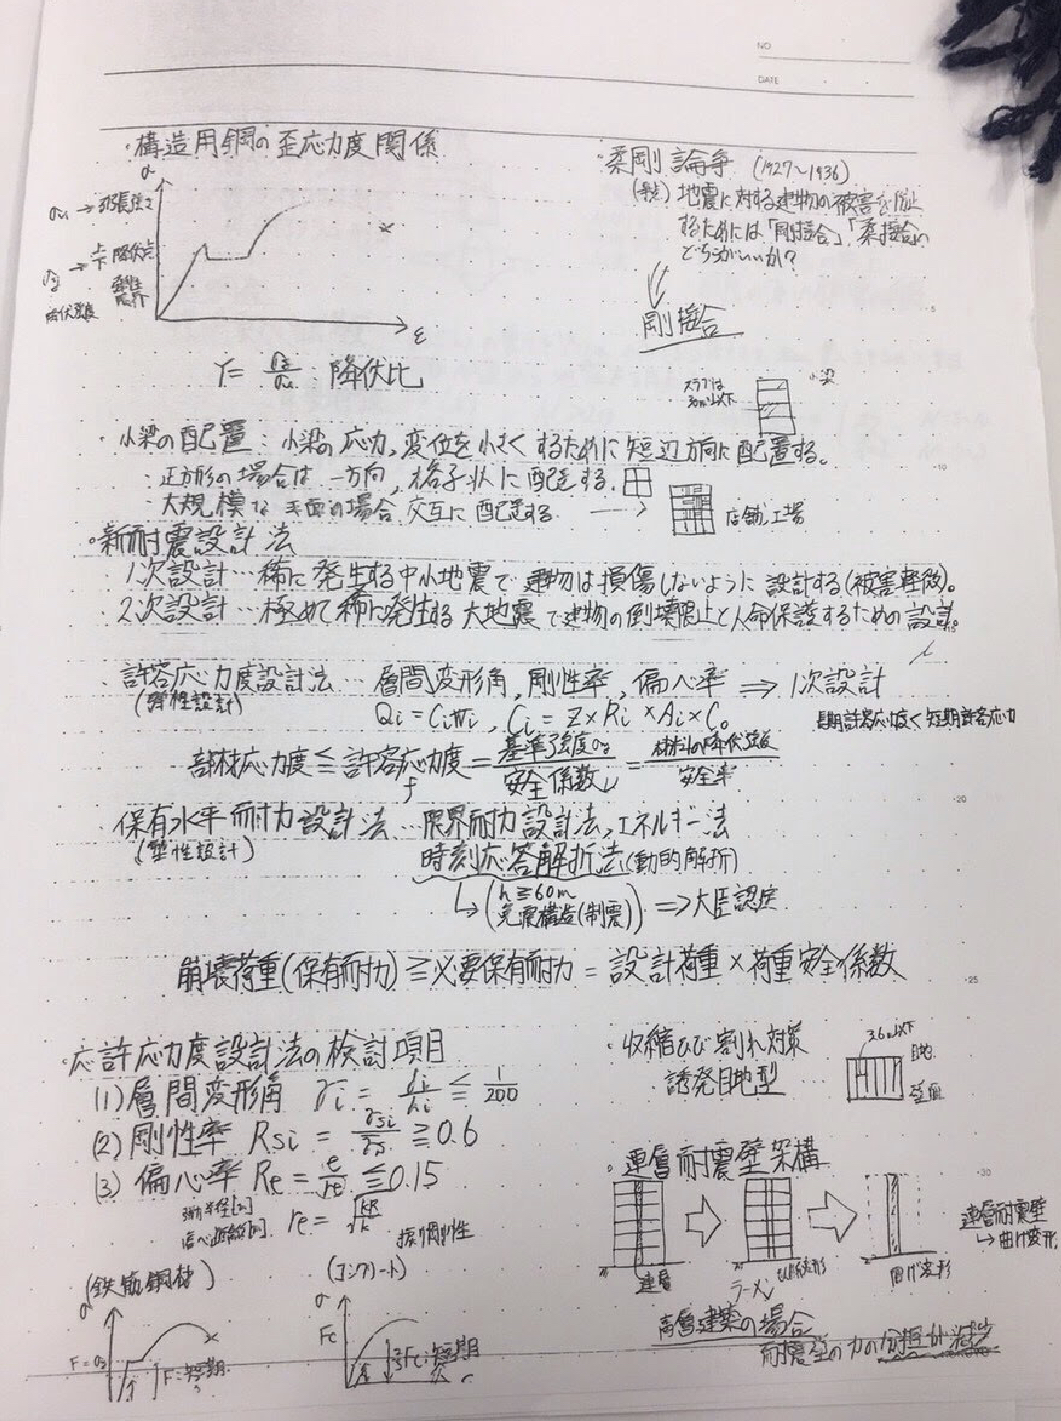 NO
DATE
・構造用鋼の歪応力度関係
σ
σu → 引張強さ
上
下 降伏点
σy →
弾性
限界
降伏強度
ε
Y = σy/σu : 降伏比
柔剛論争 (1927〜1936)
地震に対する建物の被害を防止
するためには「剛接合」「柔接合」の
どちらがいいか?
剛接合
小梁
スラブは
以下
小梁の配置 : 小梁の応力、変位を小さくするために短辺方向に配置する。
・正方形の場合は一方向、格子状に配置する。
・大規模な平面の場合、交互に配置する。
店舗、工場
・新耐震設計法
1次設計…稀に発生する中小地震で建物は損傷しないように設計する(被害軽微)。
2次設計…極めて稀に発生する大地震で建物の倒壊阻止と人命保護するための設計。
・許容応力度設計法… 層間変形角, 剛性率, 偏心率 ⇒ 1次設計
(弾性設計)
Qi = CiWi, Ci = Z×Ri×Ai×C₀
長期許容応力度 < 短期許容応力
部材応力度 ≦ 許容応力度 = 基準強度/安全係数ν = 材料の降伏強度/安全率
f
保有水平耐力設計法…限界耐力設計法, エネルギー法
(塑性設計)
時刻応答解析法(動的解析)
(h≧60m
免震構造(制震)) ⇒ 大臣認定
崩壊荷重(保有耐力) ≧ 必要保有耐力 = 設計荷重 × 荷重安全係数
許応力度設計法の検討項目
(1) 層間変形角 γi = δi/hi ≦ 1/200
(2) 剛性率 Rsi = rsi/rs ≧ 0.6
(3) 偏心率 Re = e/re ≦ 0.15
弾力半径[m]
偏心距離[m]
re = √KR/K
捩り剛性
・収縮ひび割れ対策
誘発目地型
3.0m以下
目地
・連層耐震壁架構
連層
ラーメン
曲げ変形
連層耐震壁
↳ 曲げ変形
高層建築の場合
耐震壁の力の分担が減少
(鉄筋鋼材)
σ
F = σy
F : 短期
(コンクリート)
σ
Fc
2/3Fc : 短期